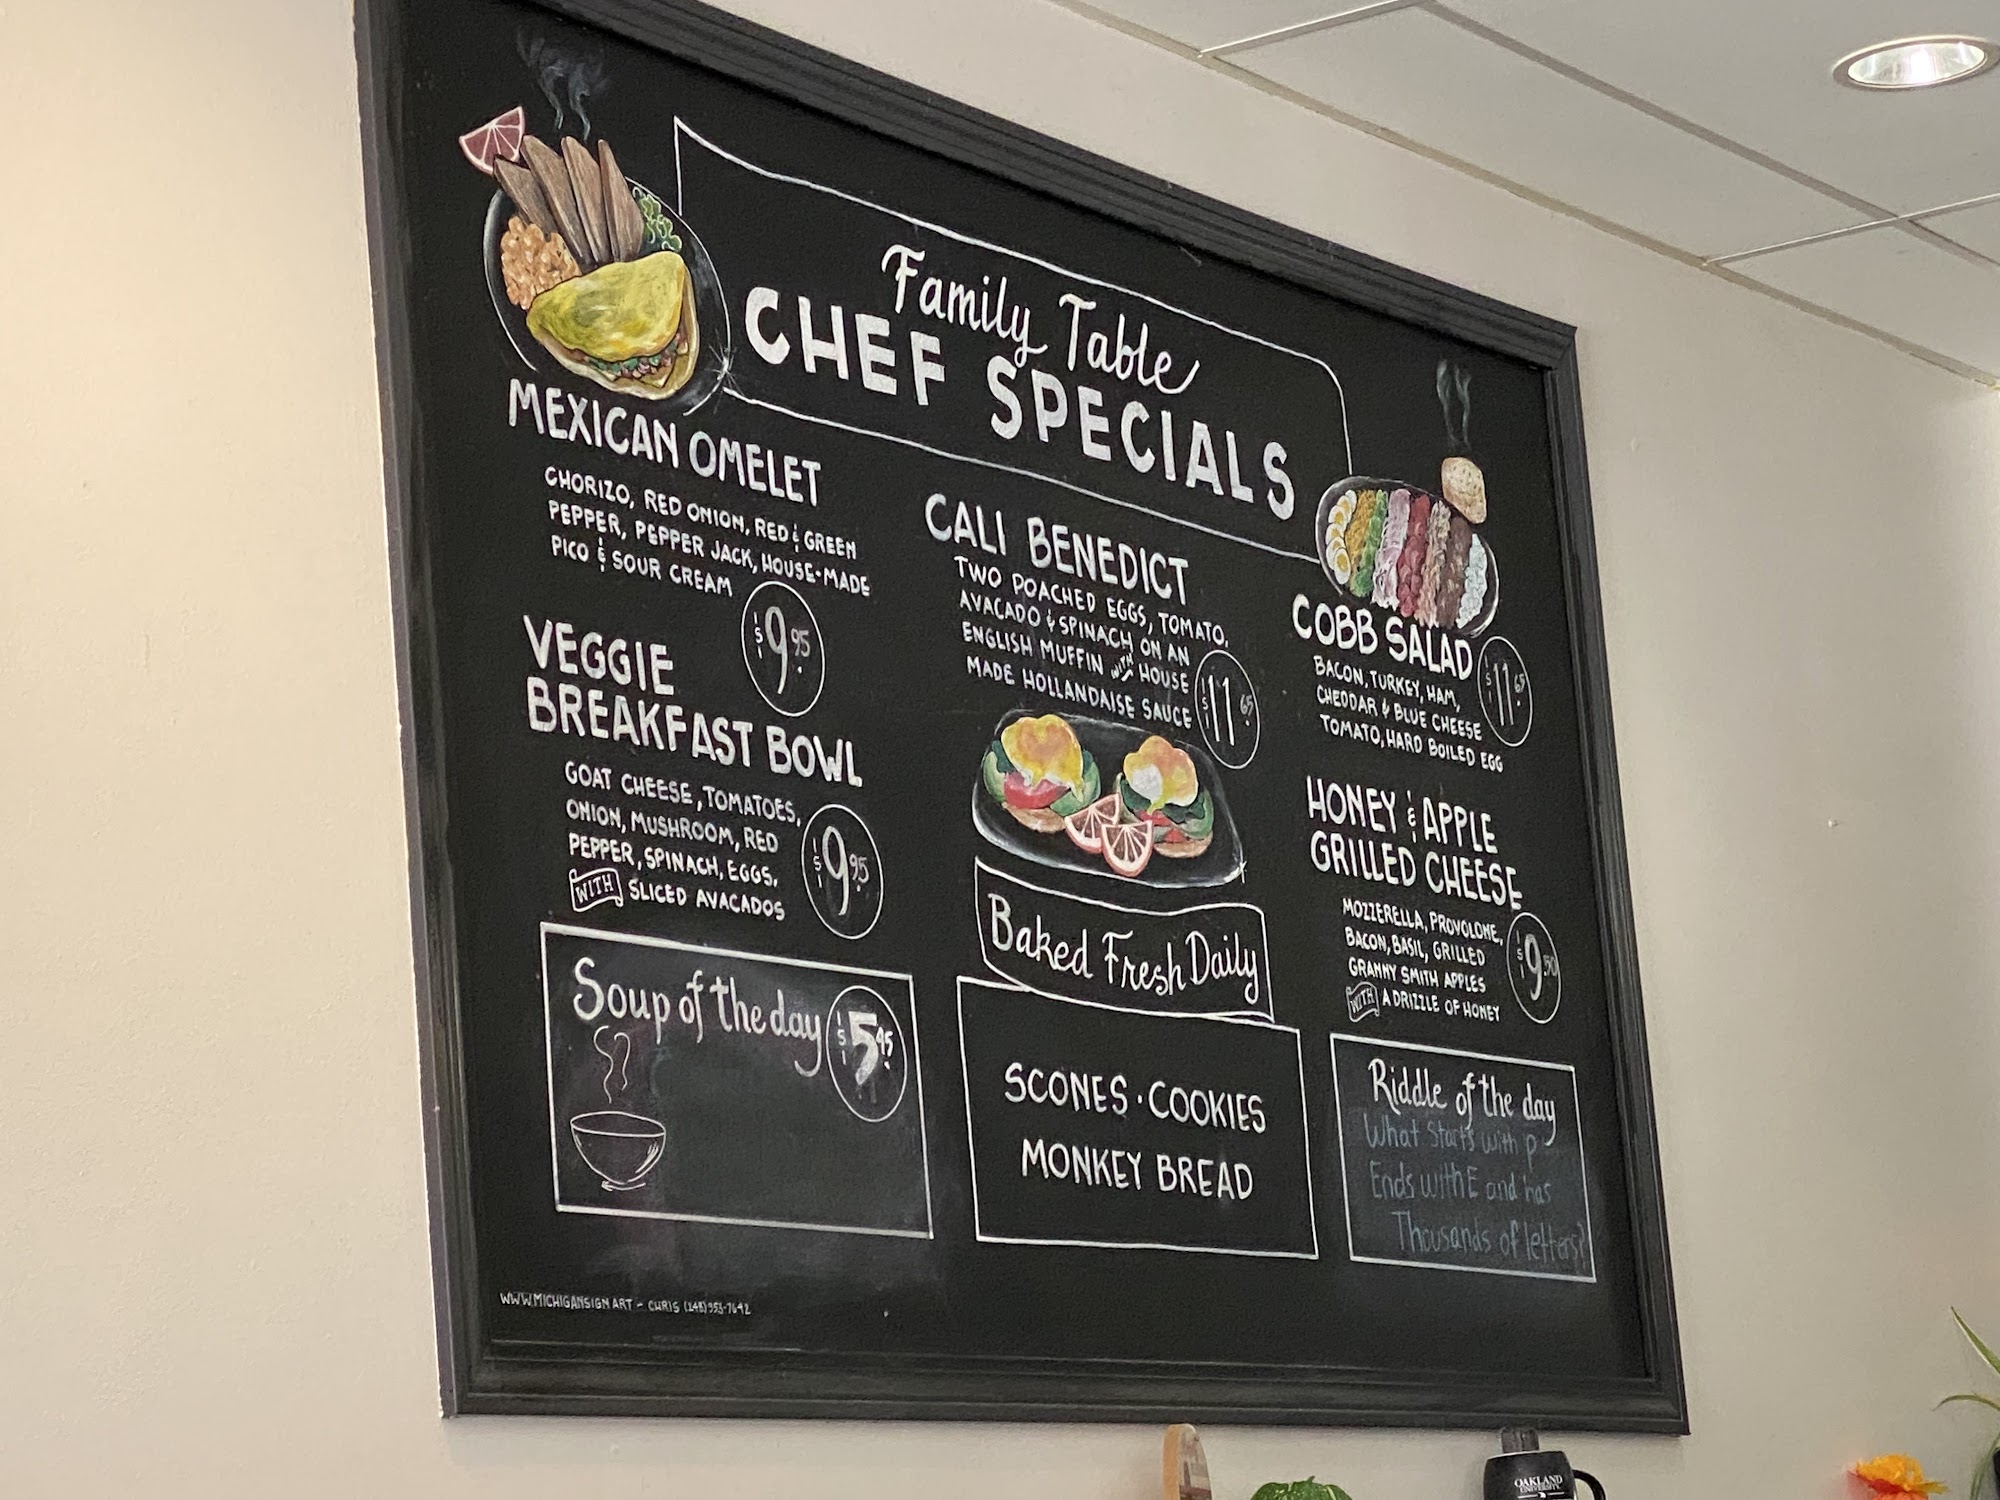 Family Table
CHEF SPECIALS
MEXICAN OMELET
CHORIZO, RED ONION, RED & GREEN
PEPPER, PEPPER JACK, HOUSE-MADE
PICO & SOUR CREAM
$9.95
VEGGIE
BREAKFAST BOWL
GOAT CHEESE, TOMATOES,
ONION, MUSHROOM, RED
PEPPER, SPINACH, EGGS,
WITH SLICED AVACADOS
$9.95
Soup of the day
$5.45
CALI BENEDICT
TWO POACHED EGGS, TOMATO,
AVACADO & SPINACH ON AN
ENGLISH MUFFIN WITH HOUSE
MADE HOLLANDAISE SAUCE
$11.65
Baked Fresh Daily
SCONES · COOKIES
MONKEY BREAD
COBB SALAD
BACON, TURKEY, HAM,
CHEDDAR & BLUE CHEESE
TOMATO, HARD BOILED EGG
$11.65
HONEY & APPLE
GRILLED CHEESE
MOZZERELLA, PROVOLONE,
BACON, BASIL, GRILLED
GRANNY SMITH APPLES
WITH A DRIZZLE OF HONEY
$9.50
Riddle of the day
What starts with P
Ends with E and has
Thousands of letters?
WWW.MICHIGANSIGN.ART - CHRIS (248) 953-7642
OAKLAND
UNIVERSITY